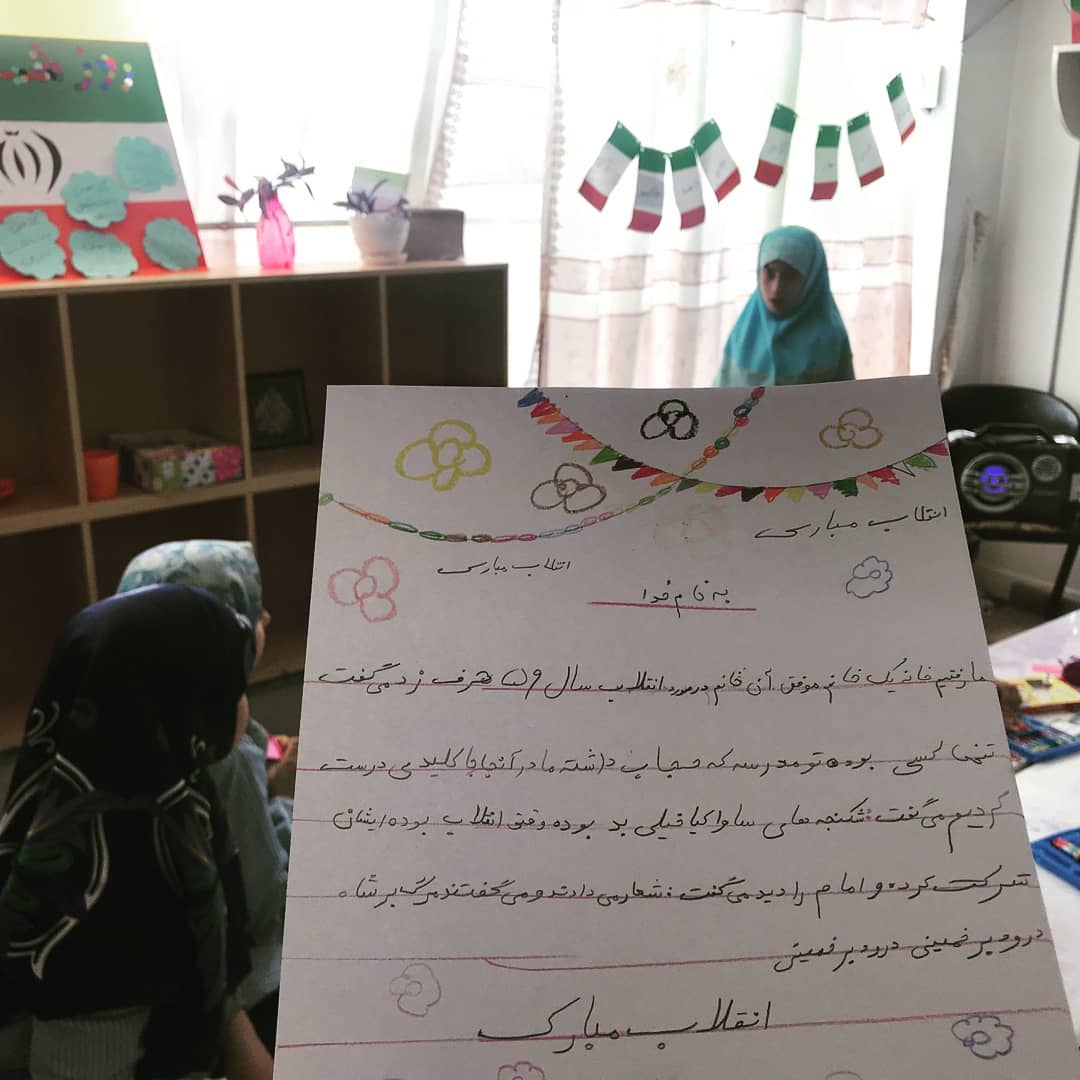 انقلاب مبارک
انقلاب مبارک
به نام خدا
ما رفتیم خانه یک خانم موفق آن خانم در مورد انقلاب سال ۵۹ هرف زد می گفت
تنها کسی بوده تو مدرسه که حجاب داشته ما در آنجا جا کلیدی درست
کردیم می گفت: شکنجه های ساواکیا خیلی بد بوده وقتی انقلاب بوده ایشان
شرکت کرده و امام را دید می گفت: شعار می دادند و می گفتند مرگ بر شاه
درود بر خمینی درود بر خمینی
انقلاب مبارک